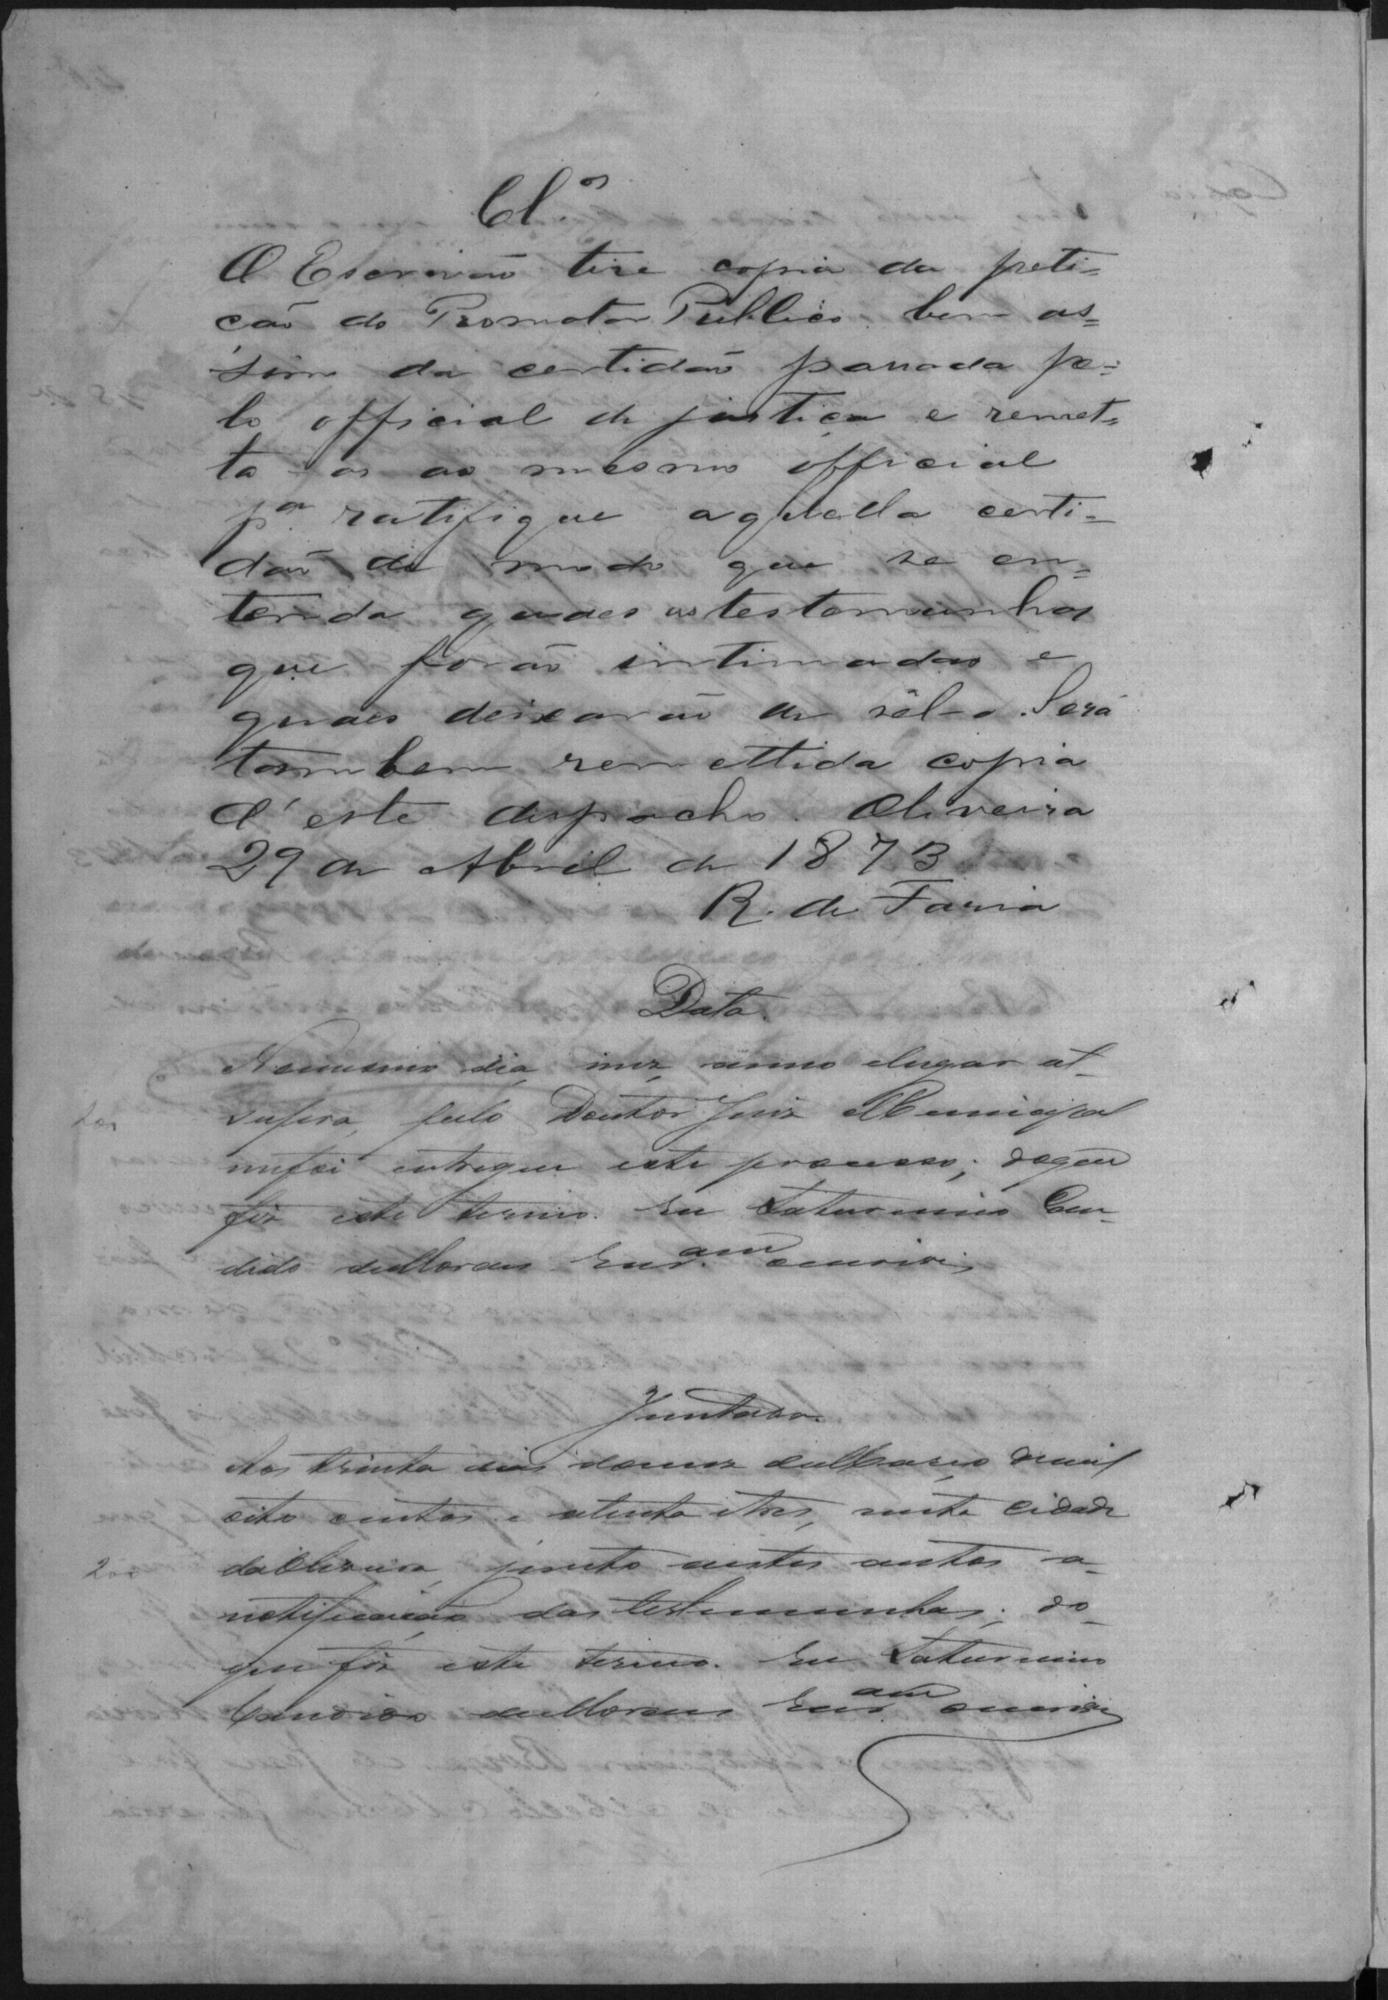 Cl.os
O Escrivão tire copia da peti=
ção do Promotor Publico bem as=
sim da certidão passada pe=
lo official de justiça e remet=
ta-os ao mesmo official
pa. ratifique aquella certi=
dão de modo que se en=
tenda quaes as testemunhas
que forão intimadas e
quaes deixarão de sêl-o. Será
tambem remettida copia
d'este despacho. Oliveira
29 de Abril de 1873
R. de Faria
Data.
No mesmo dia, mez, anno e lugar at
supra, pelo Doutor Juiz Municipal
me foi entregue este processo; do que
200
fiz este termo. Eu Saturnino Can-
dido de Moraes Escram escrivi
Juntada.
Aos trinta dias do mez de Março de mil
oito centos e setenta e tres, nesta cidade
da Oliveira, junto a estes autos a
200
notificação das testemunhas; do
que fiz este termo. Eu Saturnino
Candido de Moraes Escram escrivi